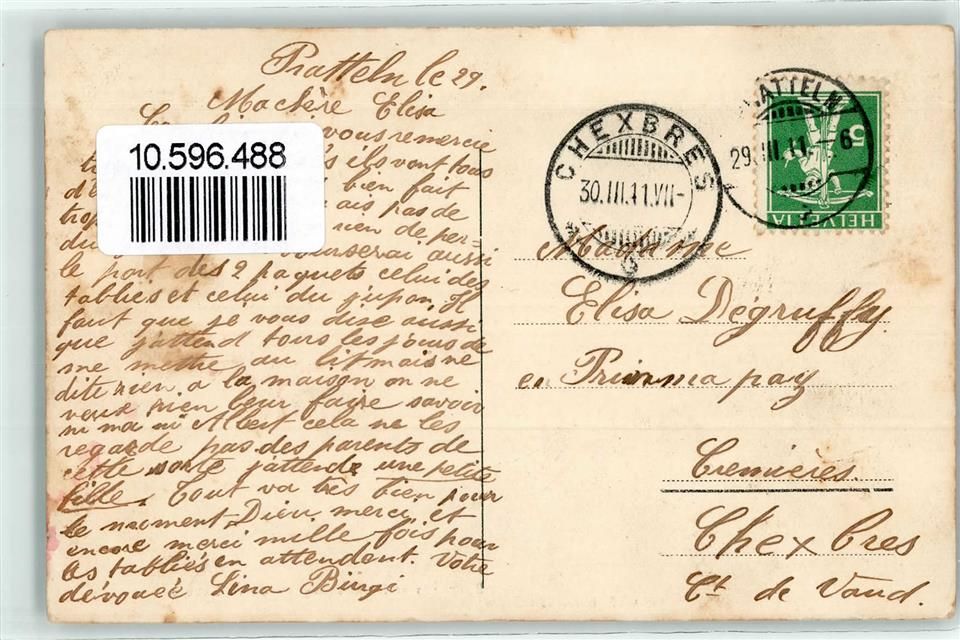 Pratteln le 29.
Ma chère Elisa
vous remercie
ils vont tous
bien fait
trop ais pas de
rien de per-
du ourserai aussi
le port des 2 paquets celui des
tabliés et celui du jupon. Il
faut que je vous dise aussi
que j'attend tous les jours de
me mettre au lit mais ne
dite rien a la maison on ne
veux rien leur faire savoir
ni ma ni Albert cela ne les
regarde pas des parents de
cette sorte j'attends une petite
fille. Tout va très bien pour
le moment Dieu merci et
encore merci mille fois pour
les tabliés en attendent. Votre
dévouéé Lina Bürgi
10.596.488
CHEXBRES
30.III.11.VII-
PRATTELN
29.III.11.-6
5
HELVETIA
Madame
Elisa Dégruffy
en Primma pay
Cremières.
Chexbres
Ct. de Vaud.